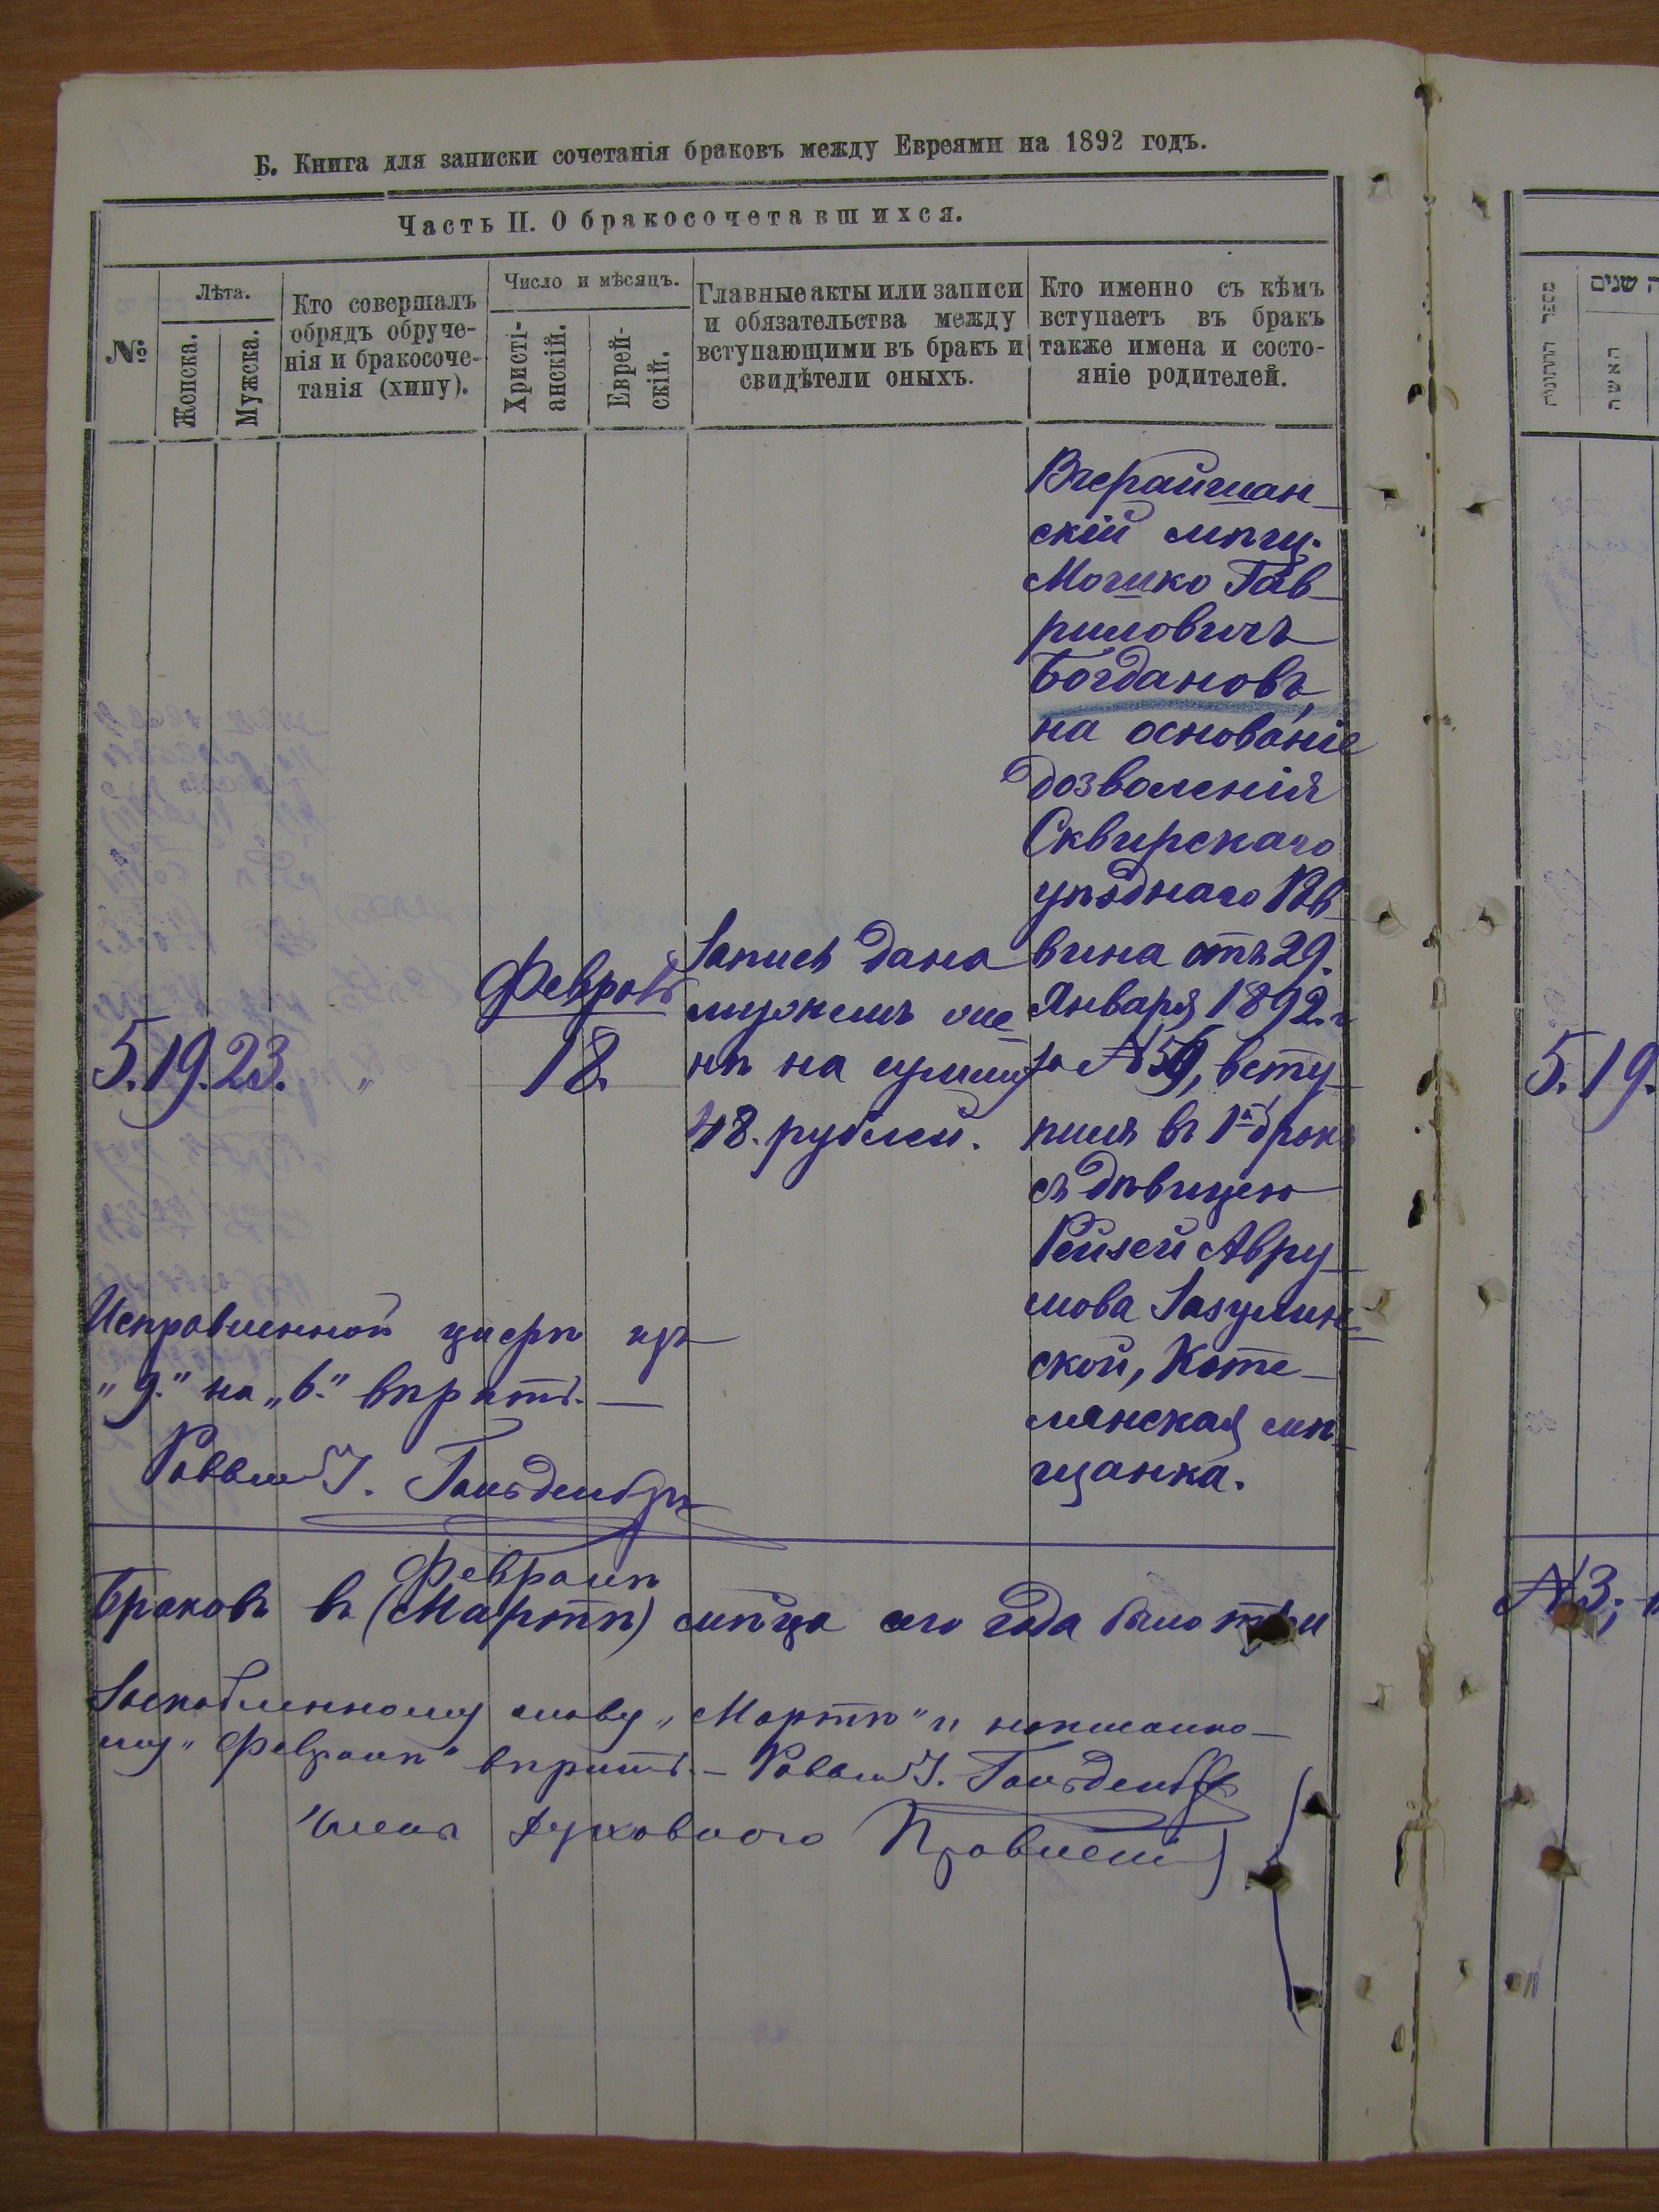 Б. Книга для записки сочетанія браковъ между Евреями на 1892 годъ.
Часть II. О бракосочетавшихся.
№
Лѣта.
Женска.
Мужска.
Кто совершалъ
обрядъ обруче-
нія и бракосоче-
танія (хипу).
Число и мѣсяцъ.
Христі-
анскій.
Еврей-
скій.
Главные акты или записи
и обязательства между
вступающими въ бракъ и
свидѣтели оныхъ.
Кто именно съ кѣмъ
вступаетъ въ бракъ
также имена и состо-
яніе родителей.
5. 19. 23. „
Февраль
18.
Запись дана
мужемъ же
нѣ на сумму
48. рублей.
Вчерайшан
скій мѣщ.
Мошко Гав
риловичъ
Богдановъ,
на основаніе
дозволенія
Сквирскаго
уѣзднаго Рав
вина отъ 29.
Января 1892. г
за №, всту
пилъ въ 1й бракъ
съ дѣвицею
Рейзей Авру
мова Заулин
ской, Коте
лянская мѣ
щанка.
Исправленной цифрѣ изъ
„9.“ на „6.“ вѣрить. —
Раввинъ І. Гольденбергъ
Февралѣ
Браковъ въ (Мартѣ) мѣсяца сего года было три
Заскобленному слову „Мартѣ“ и написано
му „Февралѣ“ вѣрить. — Раввинъ І. Гольденбергъ
Члены Духовнаго Правленія
מספר החתונות
ה שנים
האשה
5. 19.
№ 3;